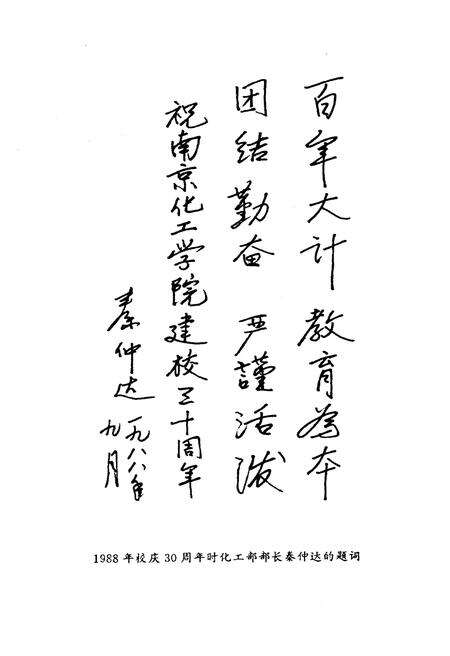 百年大计 教育為本
团结勤奋 严謹活泼
祝南京化工学院建校三十周年
秦仲达
一九八八年
九月
1988年校庆30周年时化工部部长秦仲达的题词